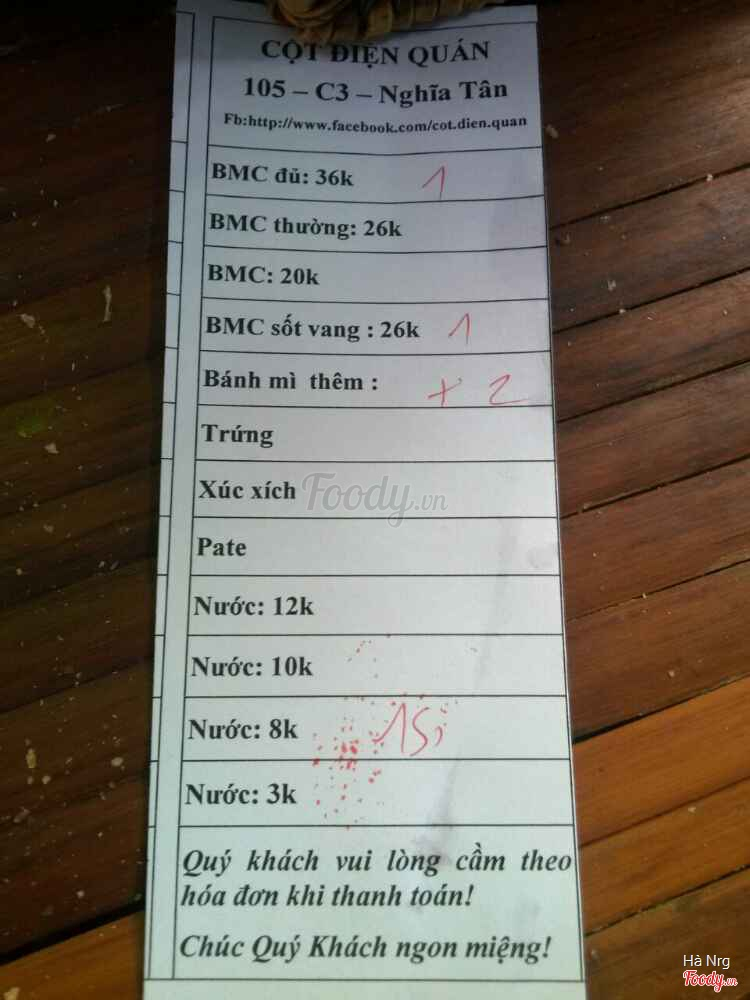 CỘT ĐIỆN QUÁN
105 – C3 – Nghĩa Tân
Fb:http://www.facebook.com/cot.dien.quan
BMC đủ: 36k 1
BMC thường: 26k
BMC: 20k
BMC sốt vang : 26k 1
Bánh mì thêm : + 2
Trứng
Xúc xích
Foody.vn
Pate
Nước: 12k
Nước: 10k
Nước: 8k
Nước: 3k
Quý khách vui lòng cầm theo
hóa đơn khi thanh toán!
Chúc Quý Khách ngon miệng!
Hà Nrg
Foody.vn